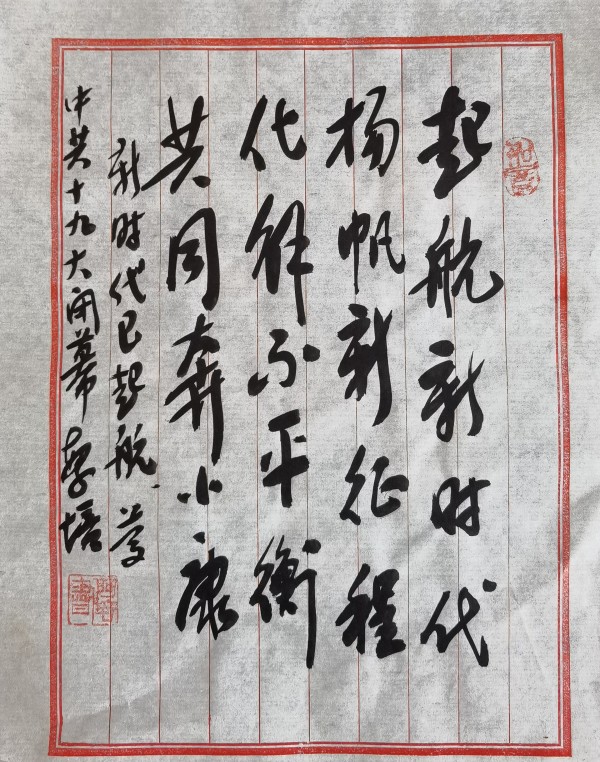 起航新时代
扬帆新征程
化解不平衡
共同奔小康
新时代已起航
中共十九大闭幕